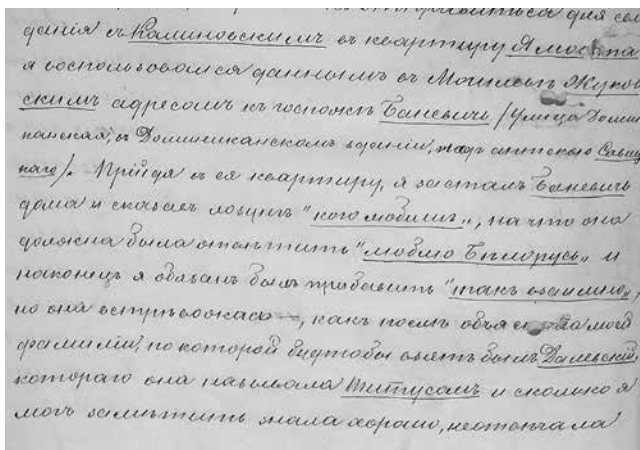 отправиться для сви
данія съ Калиновскимъ въ квартиру Ямонта
я воспользовался даннымъ въ Могилевѣ Жуков
скимъ адресомъ къ госпожѣ Баневичь (улица Домини
канская, въ Доминиканскомъ зданіи, надъ аптекою Савиц
каго). Прійдя въ ея квартиру, я засталъ Баневичь
дома и сказавъ лозунгъ "кого любишь", на что она
должна была отвѣтить "люблю Бѣларусь" и
наконецъ я обязанъ былъ прибавить "такъ взаимно",
но она встревожась, какъ послѣ объяснила моей
фамиліи, по которой будтобы взятъ былъ Далевскій,
котораго она называла Титусомъ и сколько я
могъ замѣтить знала хорошо, неотвѣчала